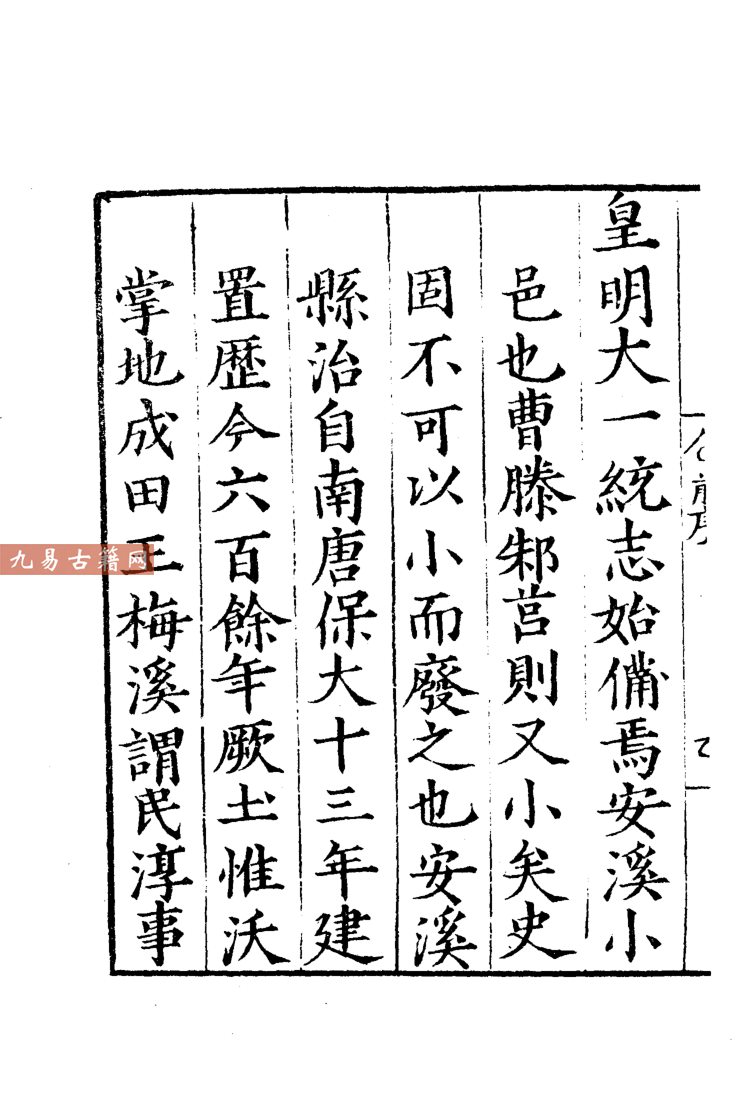 皇明大一統志始備焉安溪小
邑也曹滕邾莒則又小矣史
固不可以小而廢之也安溪
縣治自南唐保大十三年建
置歷今六百餘年厥土惟沃
掌地成田王梅溪謂民淳事
九易古籍网